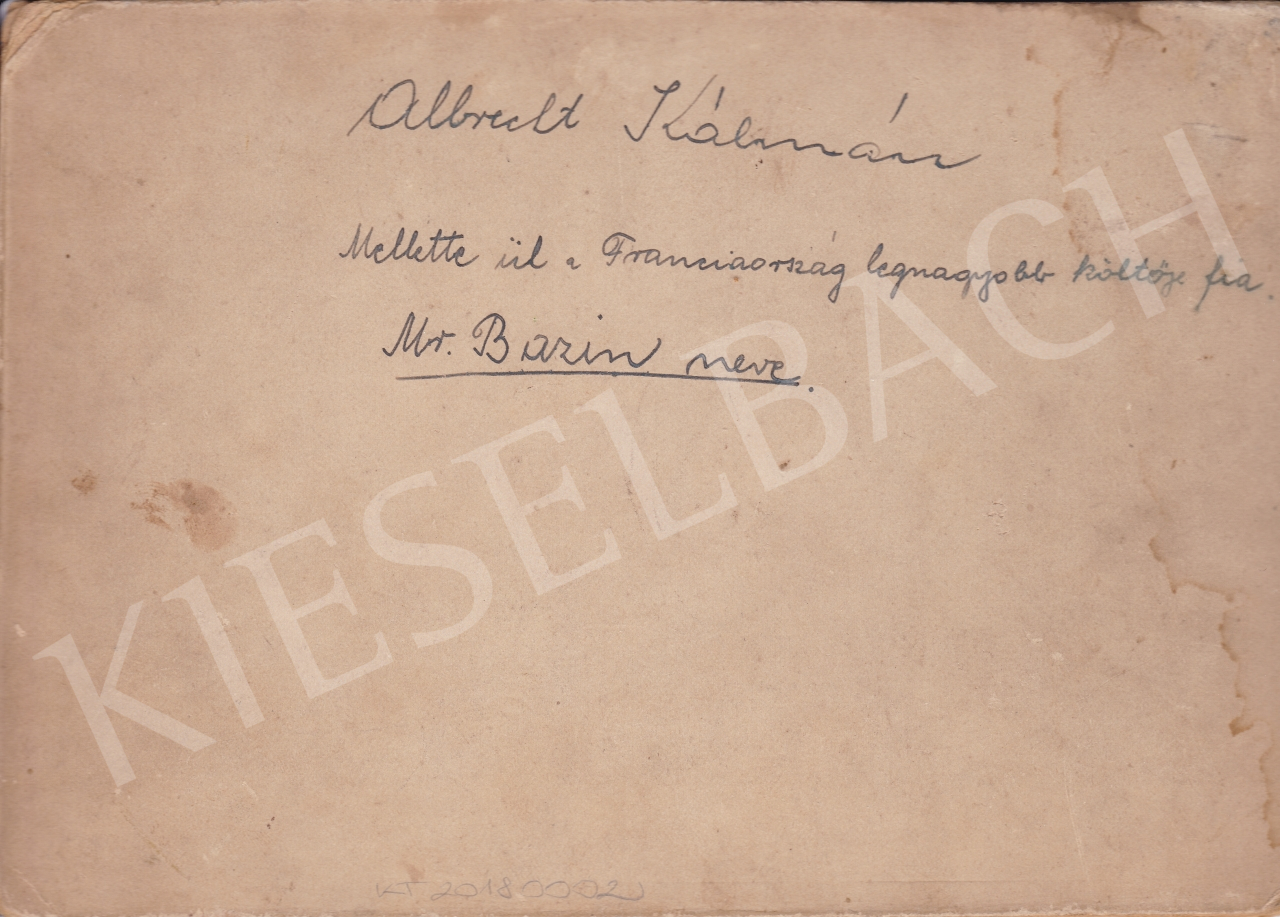 Albrecht Kálmán
Mellette ül a Franciaország legnagyobb költője fia.
Mr. Bazin neve.
KIESELBACH
KT 20180002